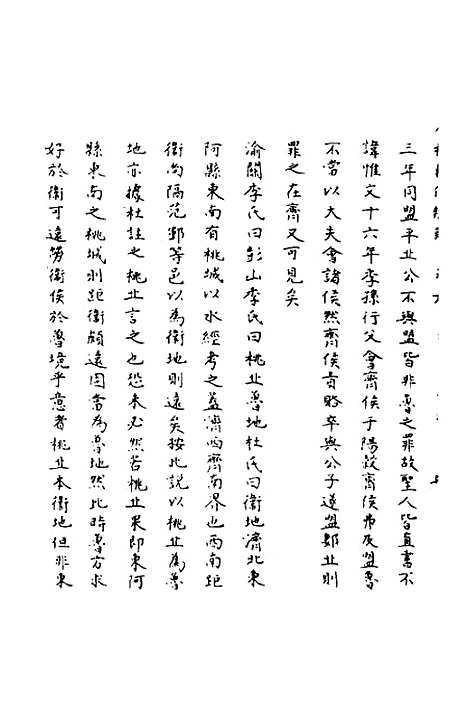 三年同盟平丘公不與盟皆非魯之罪故聖人皆直書不
諱惟文十六年季孫行父會齊侯于陽穀齊侯弗及盟魯
不當以大夫會諸侯然齊侯貢賂卒與公子遂盟郪丘則
罪之在齊又可見矣
渝關李氏曰彭山季氏曰桃丘魯地杜氏曰衛地濟北東
阿縣東南有桃城以水經考之蓋濟西齊南界也西南距
衛尚隔范鄄等邑以為衛地則遠矣按此說以桃丘為魯
地亦據杜註之桃丘言之也恐未必然若桃丘果即東阿
縣東南之桃城則距衛頗遠固當為魯地然比時魯方求
好於衛可遠勞衛侯於魯境乎意者桃丘本衛地但非東